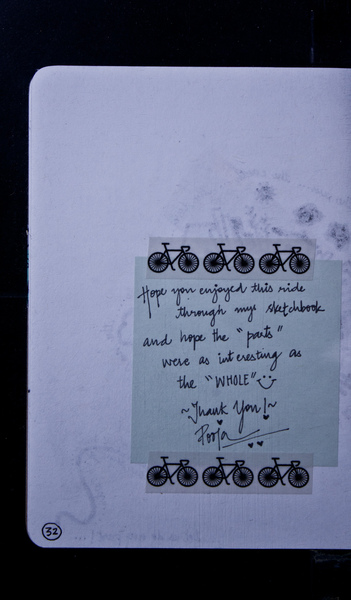 Hope you enjoyed this ride
through my sketchbook
and hope the "parts"
were as interesting as
the "WHOLE"
~Thank You!~
Pooja
32